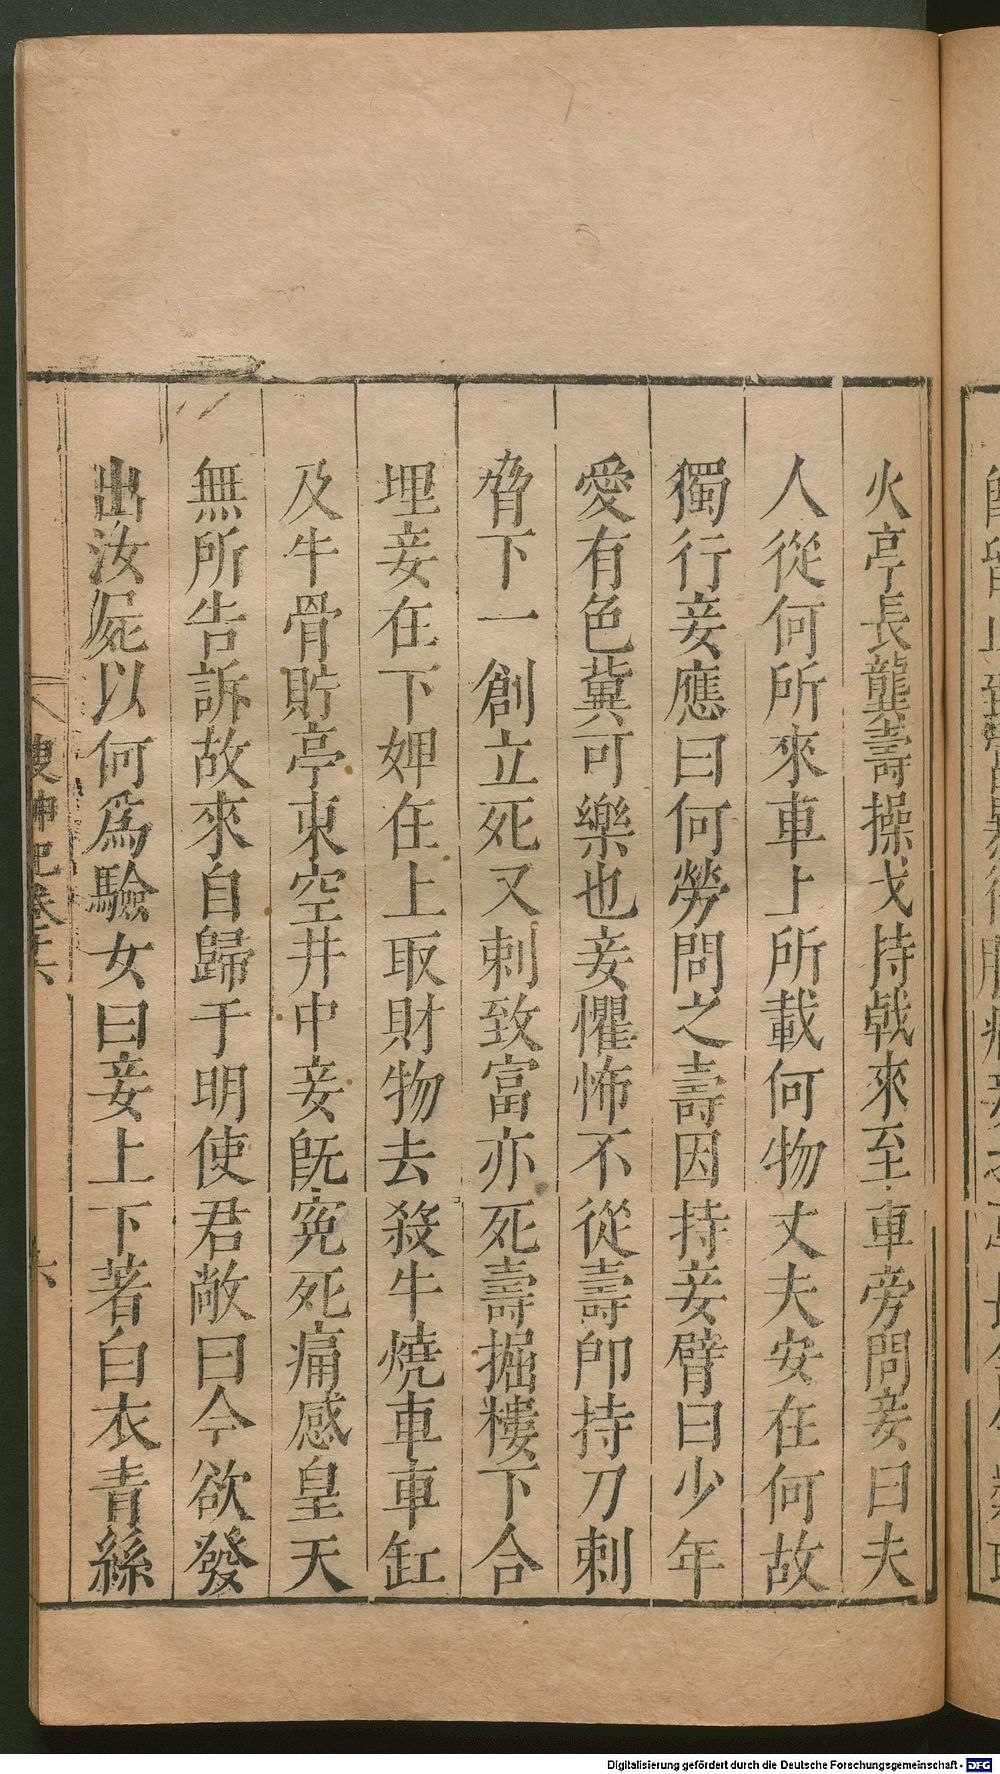 火亭長龔壽操戈持戟來至車旁問妾曰夫
人從何所來車上所載何物丈夫安在何故
獨行妾應曰何勞問之壽因持妾臂曰少年
愛有色冀可樂也妾懼怖不從壽即持刀刺
脅下一創立死又刺致富亦死壽掘樓下合
埋妾在下婢在上取財物去殺牛燒車車缸
及牛骨貯亭東空井中妾旣寃死痛感皇天
無所告訴故來自歸于明使君敞曰今欲發
出汝屍以何爲驗女曰妾上下著白衣青絲
搜神記卷十六
六
Digitalisierung gefördert durch die Deutsche Forschungsgemeinschaft - DFG